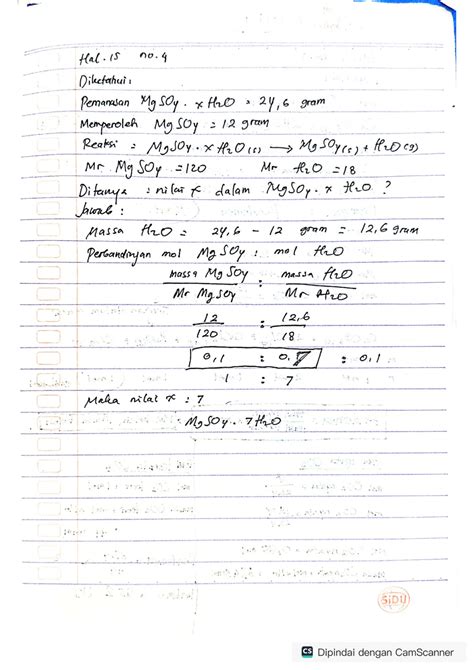 Hal. 15 no. 4
Diketahui:
Pemanasan MgSO4 . x H2O = 24,6 gram
Memperoleh MgSO4 = 12 gram
Reaksi : MgSO4 . x H2O(s) → MgSO4(s) + H2O(g)
Mr MgSO4 = 120 Mr H2O = 18
Ditanya : nilai x dalam MgSO4 . x H2O ?
Jawab :
Massa H2O = 24,6 - 12 gram = 12,6 gram
Perbandingan mol MgSO4 : mol H2O
massa MgSO4 : massa H2O
Mr MgSO4 Mr H2O
12 : 12,6
120 18
0,1 : 0,7 : 0,1
1 : 7
Maka nilai x : 7
MgSO4 . 7 H2O
SIDU
CS Dipindai dengan CamScanner